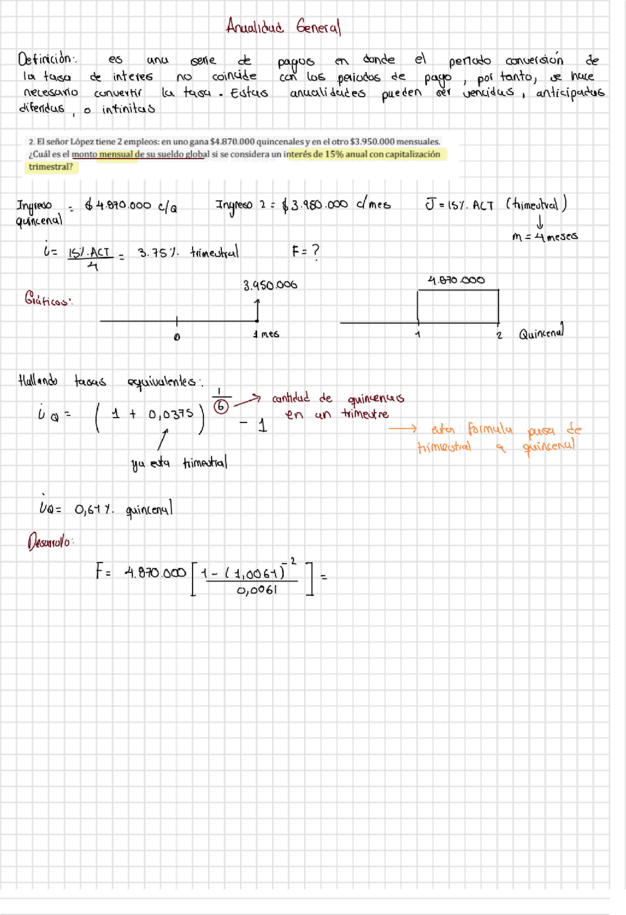 Anualidad General
Definición: es una serie de pagos en donde el periodo conversión de
la tasa de interes no coincide con los periodos de pago, por tanto, se hace
necesario convertir la tasa. Estas anualidades pueden ser vencidas, anticipadas
diferidas, o infinitas
2. El señor López tiene 2 empleos: en uno gana $4.870.000 quincenales y en el otro $3.950.000 mensuales.
¿Cuál es el monto mensual de su sueldo global si se considera un interés de 15% anual con capitalización
trimestral?
Ingreso quincenal = $4.870.000 c/Q Ingreso 2 = $3.950.000 c/mes J = 15% ACT (trimestral)
↓
m = 4 meses
i = 15%.ACT / 4 = 3.75% trimestral F = ?
Gráficos:
3.950.000
0 1 mes
4.870.000
1 2 Quincenal
Hallando tasas equivalentes:
iQ = (1 + 0,0375)^(1/6) - 1
→ cantidad de quincenas
en un trimestre
→ esta formula pasa de
trimestral a quincenal
ya esta trimestral
iQ = 0,61% quincenal
Desarrollo:
F = 4.870.000 [1 - (1,0061)^-2 / 0,0061] =